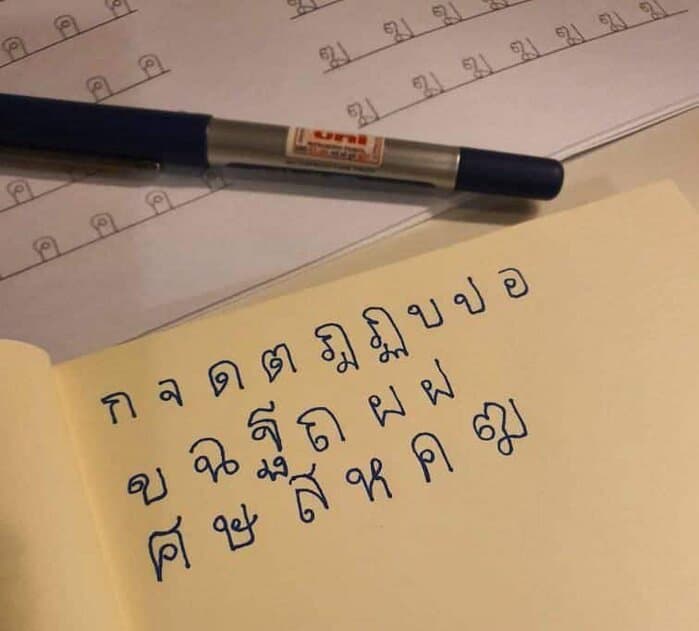 ค ค ค ค
ค ค
ฆ ฆ ฆ
ฆ ฆ ฆ ฆ ฆ ฆ ฆ
ฆ ฆ
uni
ค ค ค ค
ก จ ด ต ฎ ฏ บ ป อ
ข ฉ ฐ ถ ผ ฝ
ศ ษ ส ห ค ฆ